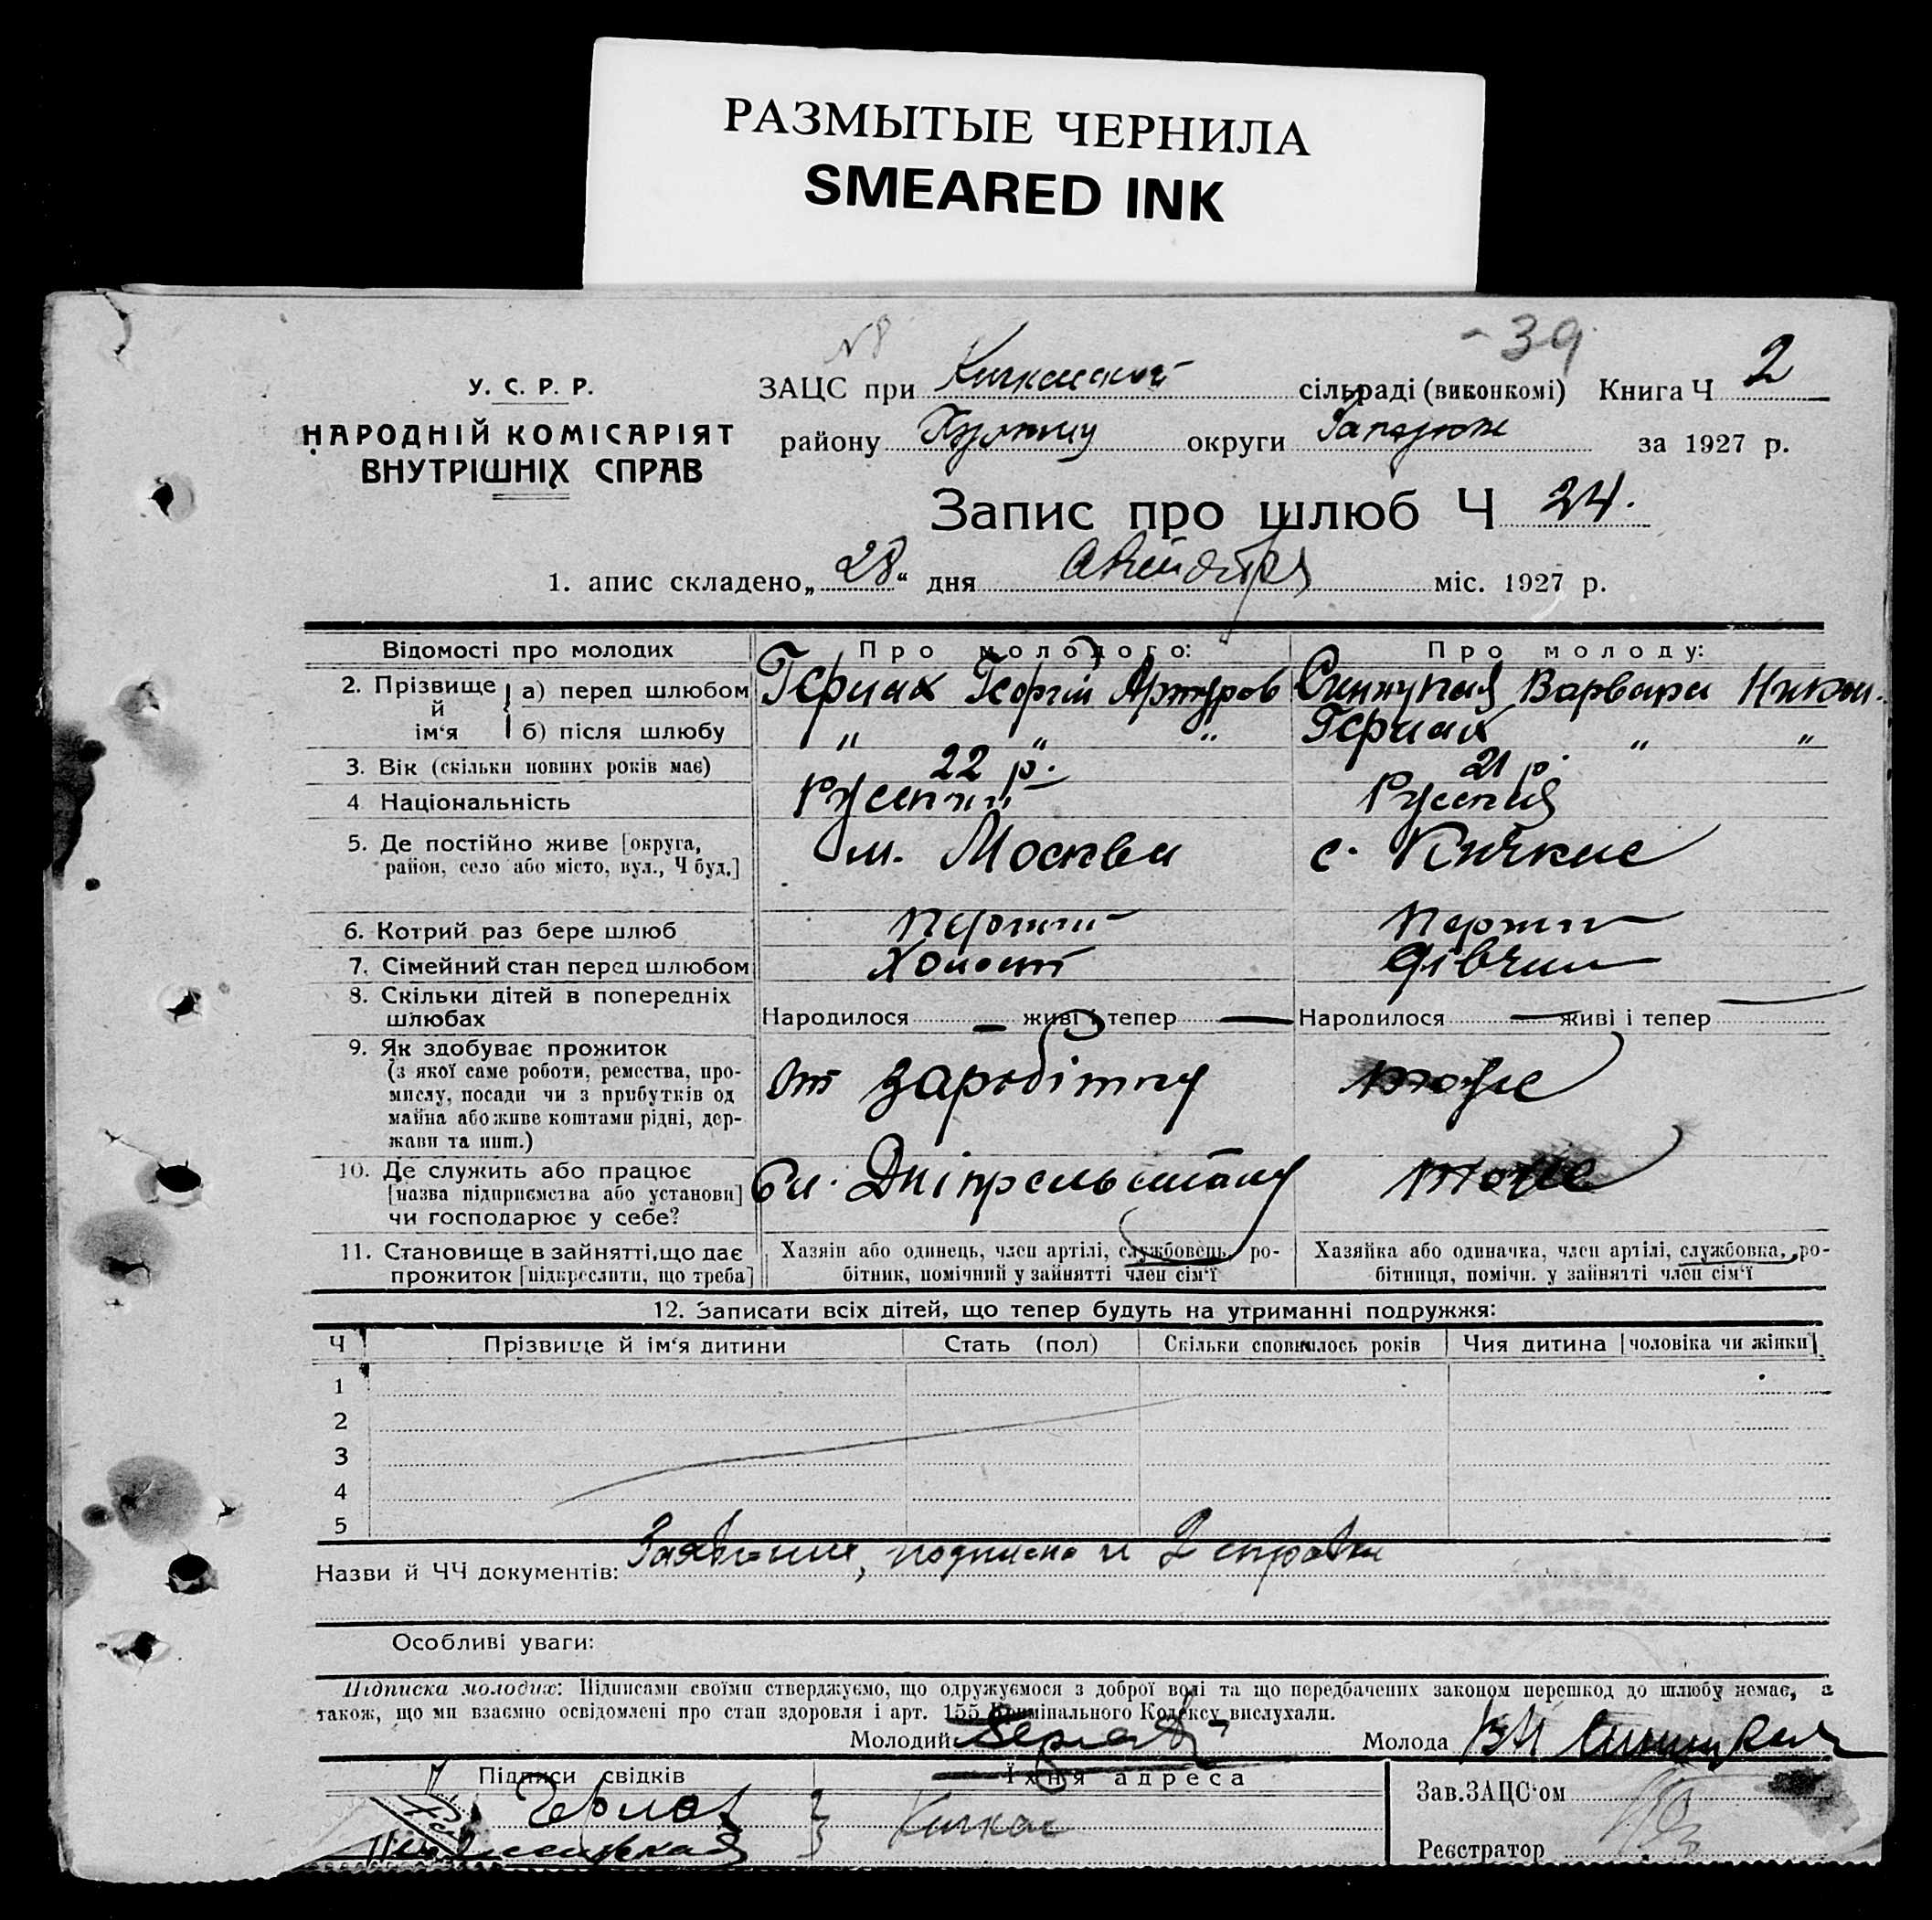 РАЗМЫТЫЕ ЧЕРНИЛА
SMEARED INK
№ 8
- 39
У. С. Р. Р.
НАРОДНІЙ КОМІСАРІЯТ
ВНУТРІШНІХ СПРАВ
ЗАЦС при сільраді (виконкомі) Книга Ч 2
району округи Запоріж за 1927 р.
Запис про шлюб Ч 24.
1. апис складено „ 28 “ дня міс. 1927 р.
Відомості про молодих Про молодого: Про молоду:
2. Прізвище й ім‘я
а) перед шлюбом Герлах Георгій Артуров Варвара Никол.
б) після шлюбу " " " Герлах " "
3. Вік (скільки повних років має) 22 р. 21 р.
4 Національність Русский Русская
5. Де постійно живе [округа, район, село або місто, вул., Ч буд.] м. Москва с. Кичкас
6. Котрий раз бере шлюб Перший Перший
7. Сімейний стан перед шлюбом Холост Дівчина
8. Скільки дітей в попередніх шлюбах Народилося — живі і тепер — Народилося — живі і тепер —
9. Як здобуває прожиток
(з якої саме роботи, ремества, промислу, посади чи з прибутків од майна або живе коштами рідні, держави та инш.) От заробітку тоже
10. Де служить або працює
[назва підприємства або установи]
чи господарює у себе? Дніпрельстану тоже
11. Становище в зайнятті, що дає прожиток [підкреслити, що треба]
Хазяін або одинець, член артілі, службовець, робітник, помічний у зайнятті член сім‘ї
Хазяйка або одиначка, член артілі, службовка, робітниця, помічн. у зайнятті член сім‘ї
12. Записати всіх дітей, що тепер будуть на утриманні подружжя:
Ч Прізвище й ім‘я дитини Стать (пол) Скільки сповнилось років Чия дитина [чоловіка чи жінки]
1
2
3
4
5
Назви й ЧЧ документів: подписка и 2 справки
Особливі уваги:
Підписка молодих: Підписами своїми стверджуємо, що одружуємося з доброї волі та що передбачених законом перешкод до шлюбу немає, а
також, що ми взаємно освідомлені про стан здоровля і арт. 155 Кримінального Кодексу вислухали.
Молодий Молода
Підписи свідків Їхня адреса
Кичкас
Зав. ЗАЦС‘ом
Реєстратор